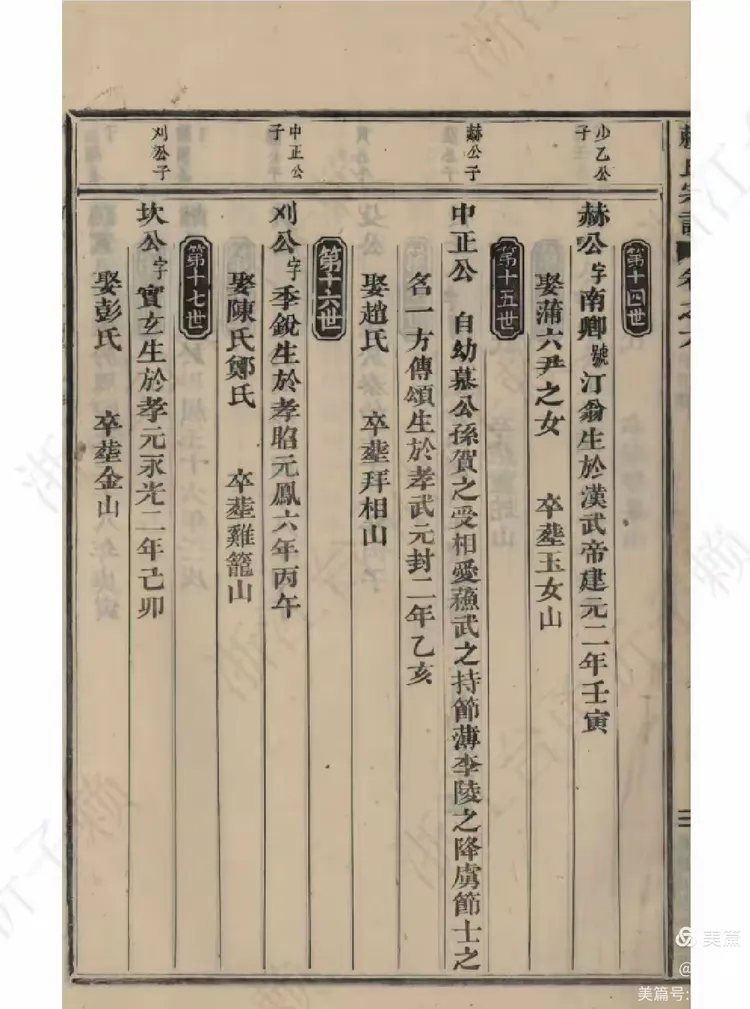 賴氏宗譜
卷之六
二
第十四世
少乙公子
赫公字南卿號汀翁生於漢武帝建元二年壬寅
娶蒲六尹之女 卒塟玉女山
第十五世
赫公子
中正公 自幼慕公孫賀之受相愛蘓武之持節薄李陵之降虜節士之
名一方傳頌生於孝武元封二年乙亥
娶趙氏 卒塟拜相山
第十六世
中正公子
刈公字季銳生於孝昭元鳳六年丙午
娶陳氏鄭氏 卒塟雞籠山
第十七世
刈公子
坎公字實玄生於孝元永光二年己卯
娶彭氏 卒塟金山
美篇
@
美篇号: